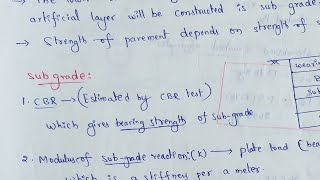 artificial layer will be constructed is sub grade
→ Strength of pavement depends on strength of s
Sub grade:
1. CBR → (Estimated by CBR test)
which gives bearing strength of sub-grade
2. Modulus of sub-grade reaction: (K) → plate load (bea
which is a stiffney per a meter.
wearin
B
Sub